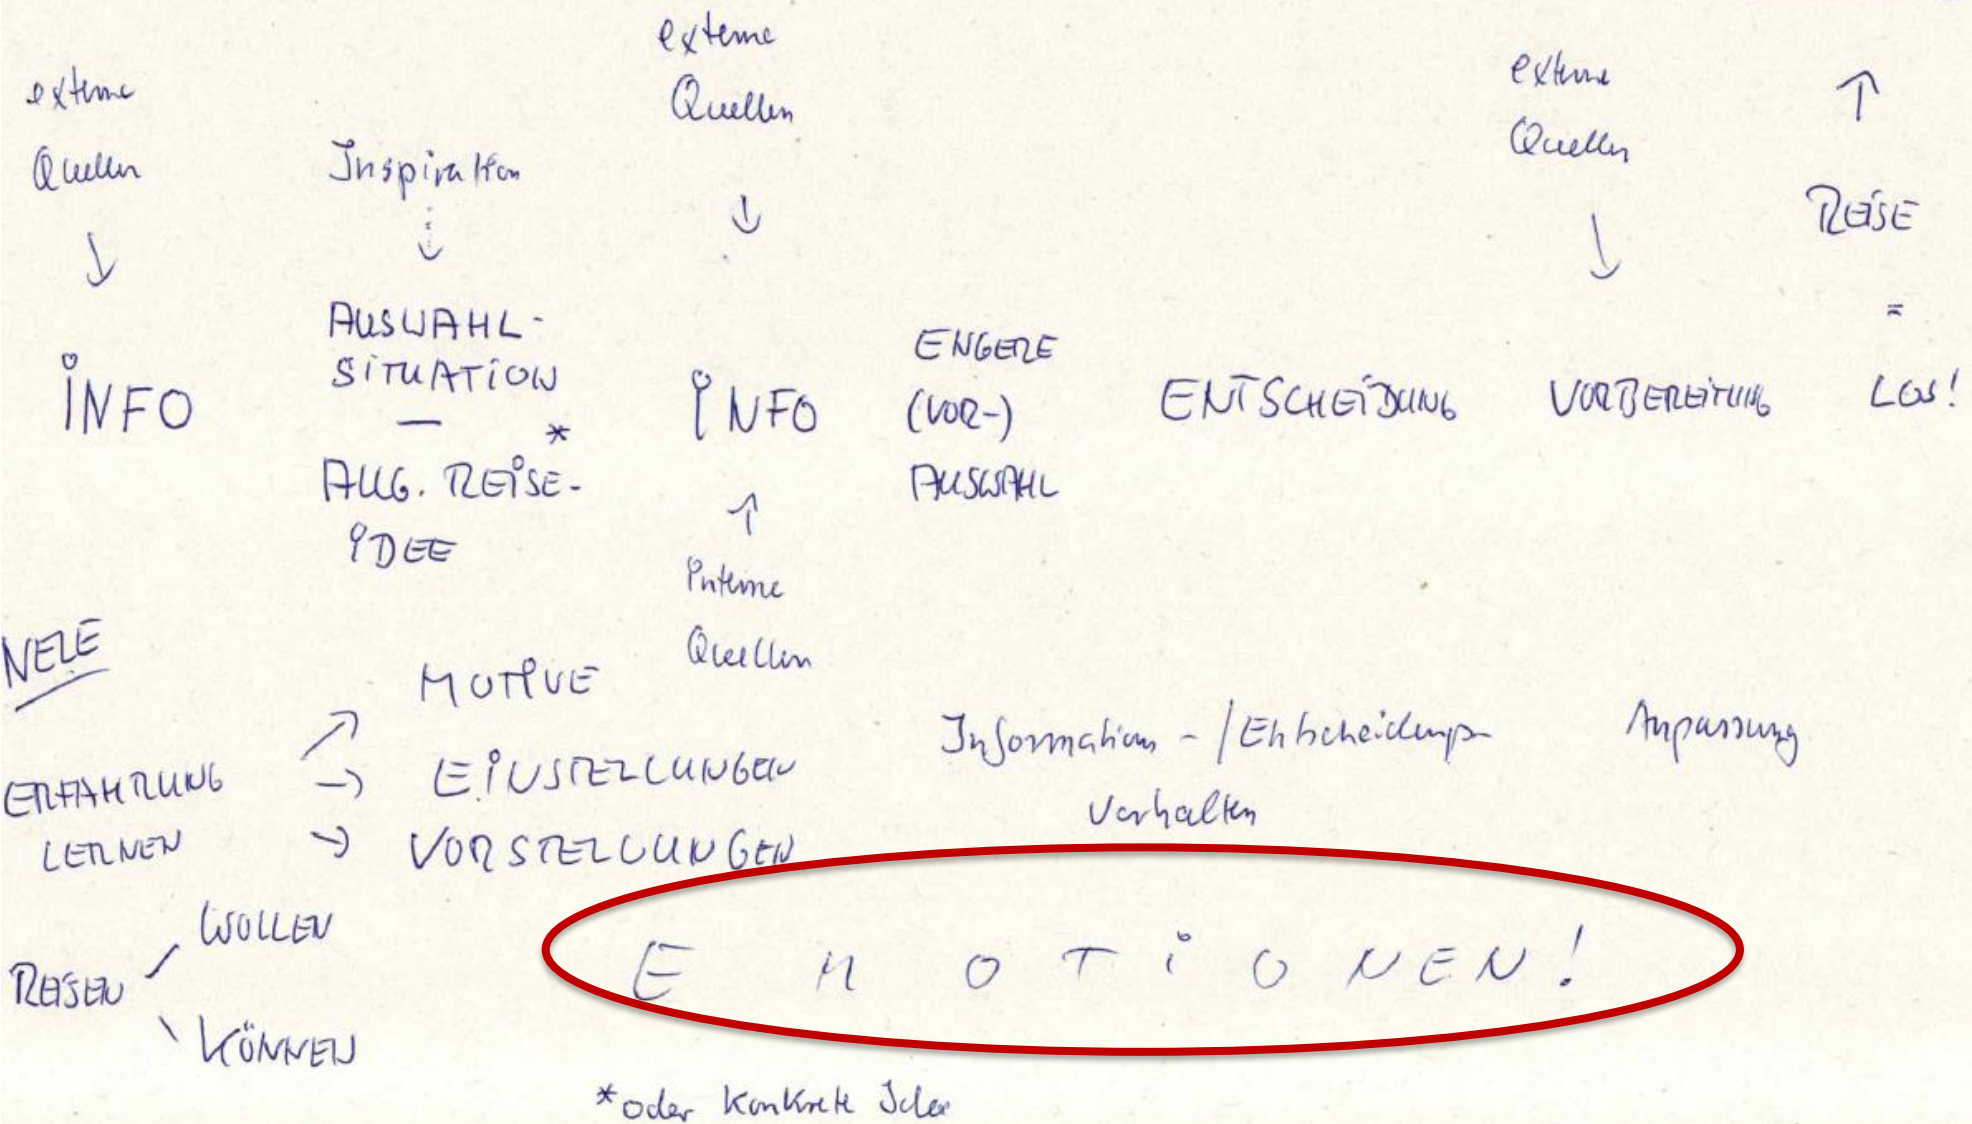 externe
Quellen
↓
INFO
Inspiration
↓
AUSWAHL-
SITUATION
—
*
ALLG. REISE-
IDEE
externe
Quellen
↓
INFO
↑
Interne
Quellen
ENGERE
(VOR-)
AUSWAHL
ENTSCHEIDUNG
externe
Quellen
↓
VORBEREITUNG
↑
REISE
=
LOS!
NELE
ERFAHRUNG
LERNEN
↗ MOTIVE
→ EINSTELLUNGEN
→ VORSTELLUNGEN
Informations-/Entscheidungs-
verhalten
Anpassung
REISEN
WOLLEN
KÖNNEN
EMOTIONEN!
* oder konkrete Idee